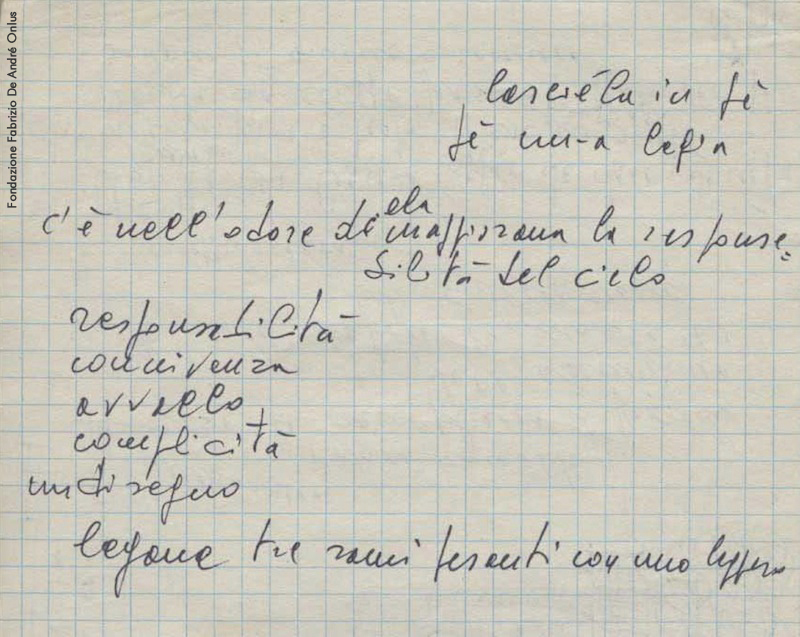 Fondazione Fabrizio De André Onlus
in
un-a
ela
c'è nell'odore di maggiorana la responsa=
bilità del cielo
responsabilità
connivenza
avvallo
complicità
un disegno
tre rami pesanti con uno leggero